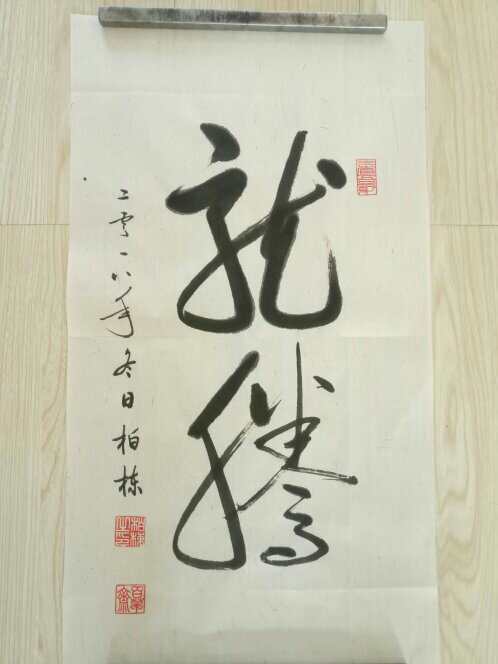 龍騰
二零一八年冬日柏栋